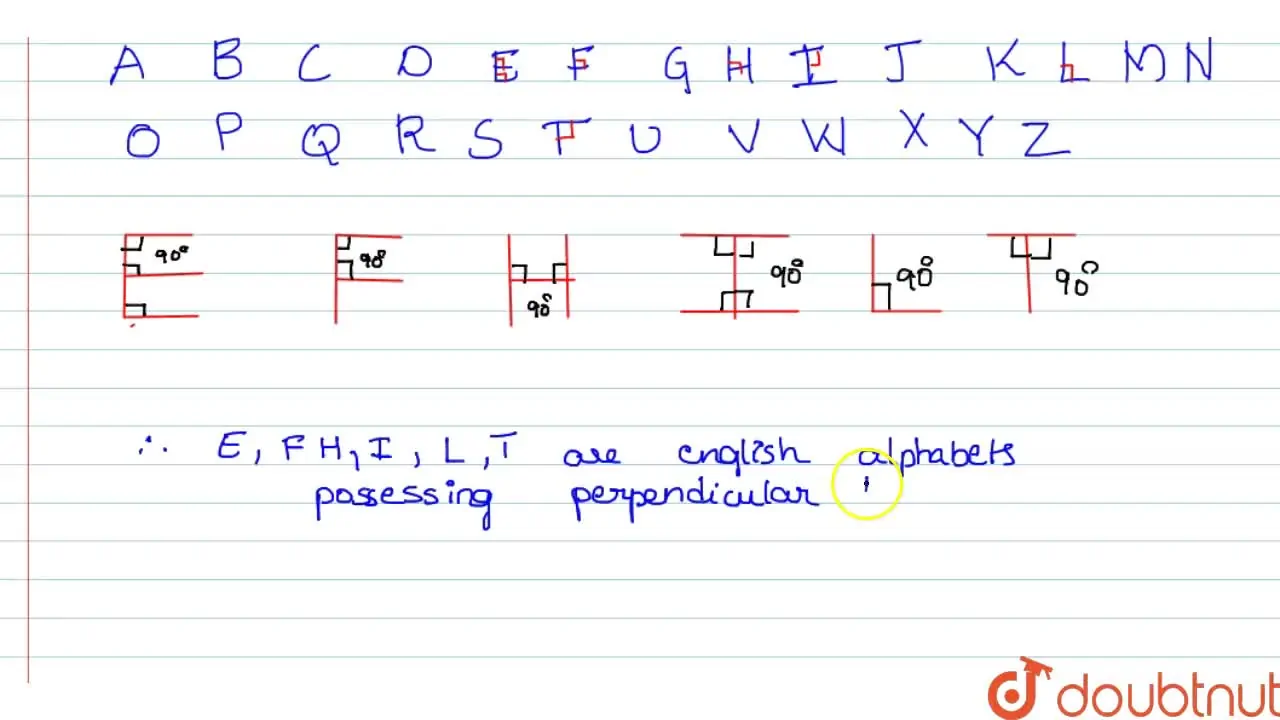 A B C D E F G H I J K L M N
O P Q R S T U V W X Y Z
90° 90° 90° 90° 90° 90°
∴ E, F H, I, L, T are english alphabets
possessing perpendicular
doubtnut